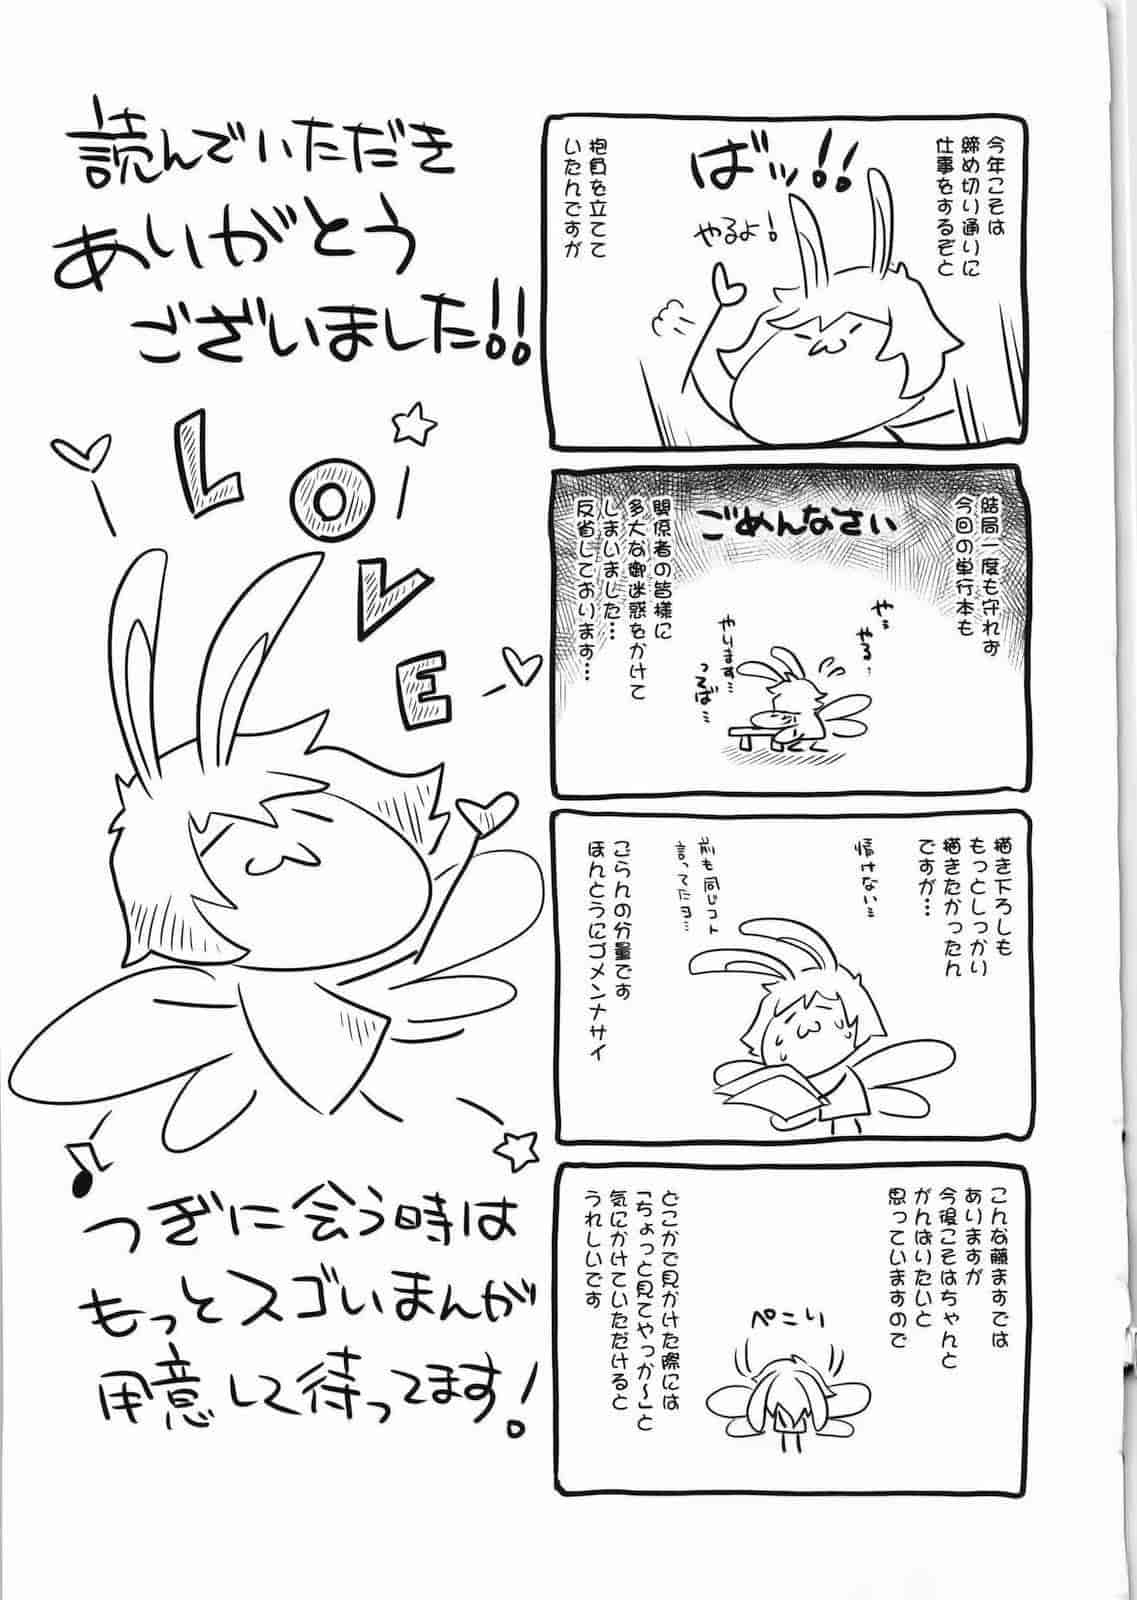 今年こそは
締め切り通りに
仕事をするぞと
ばッ!!
やるよ!
抱負を立てて
いたんですが
結局一度も守れず
今回の単行本も
ごめんなさい
関係者の皆様に
多大な御迷惑をかけて
しまいました…
反省しております…
や…
やる…
やります…
つるば…
描き下ろしも
もっとしっかり
描きたかったん
ですが…
情けない…
前も同じコト
言ってたヨ…
ごらんの分量です
ほんとうにゴメンナサイ
こんな藤ますでは
ありますが
今後こそはちゃんと
がんばりたいと
思っていますので
ぺこり
どこかで見かけた際には
「ちょっと見てやっか～」と
気にかけていただけると
うれしいです
読んでいただき
ありがとう
ございました!!
LOVE
つぎに会う時は
もっとスゴいまんが
用意して待ってます!